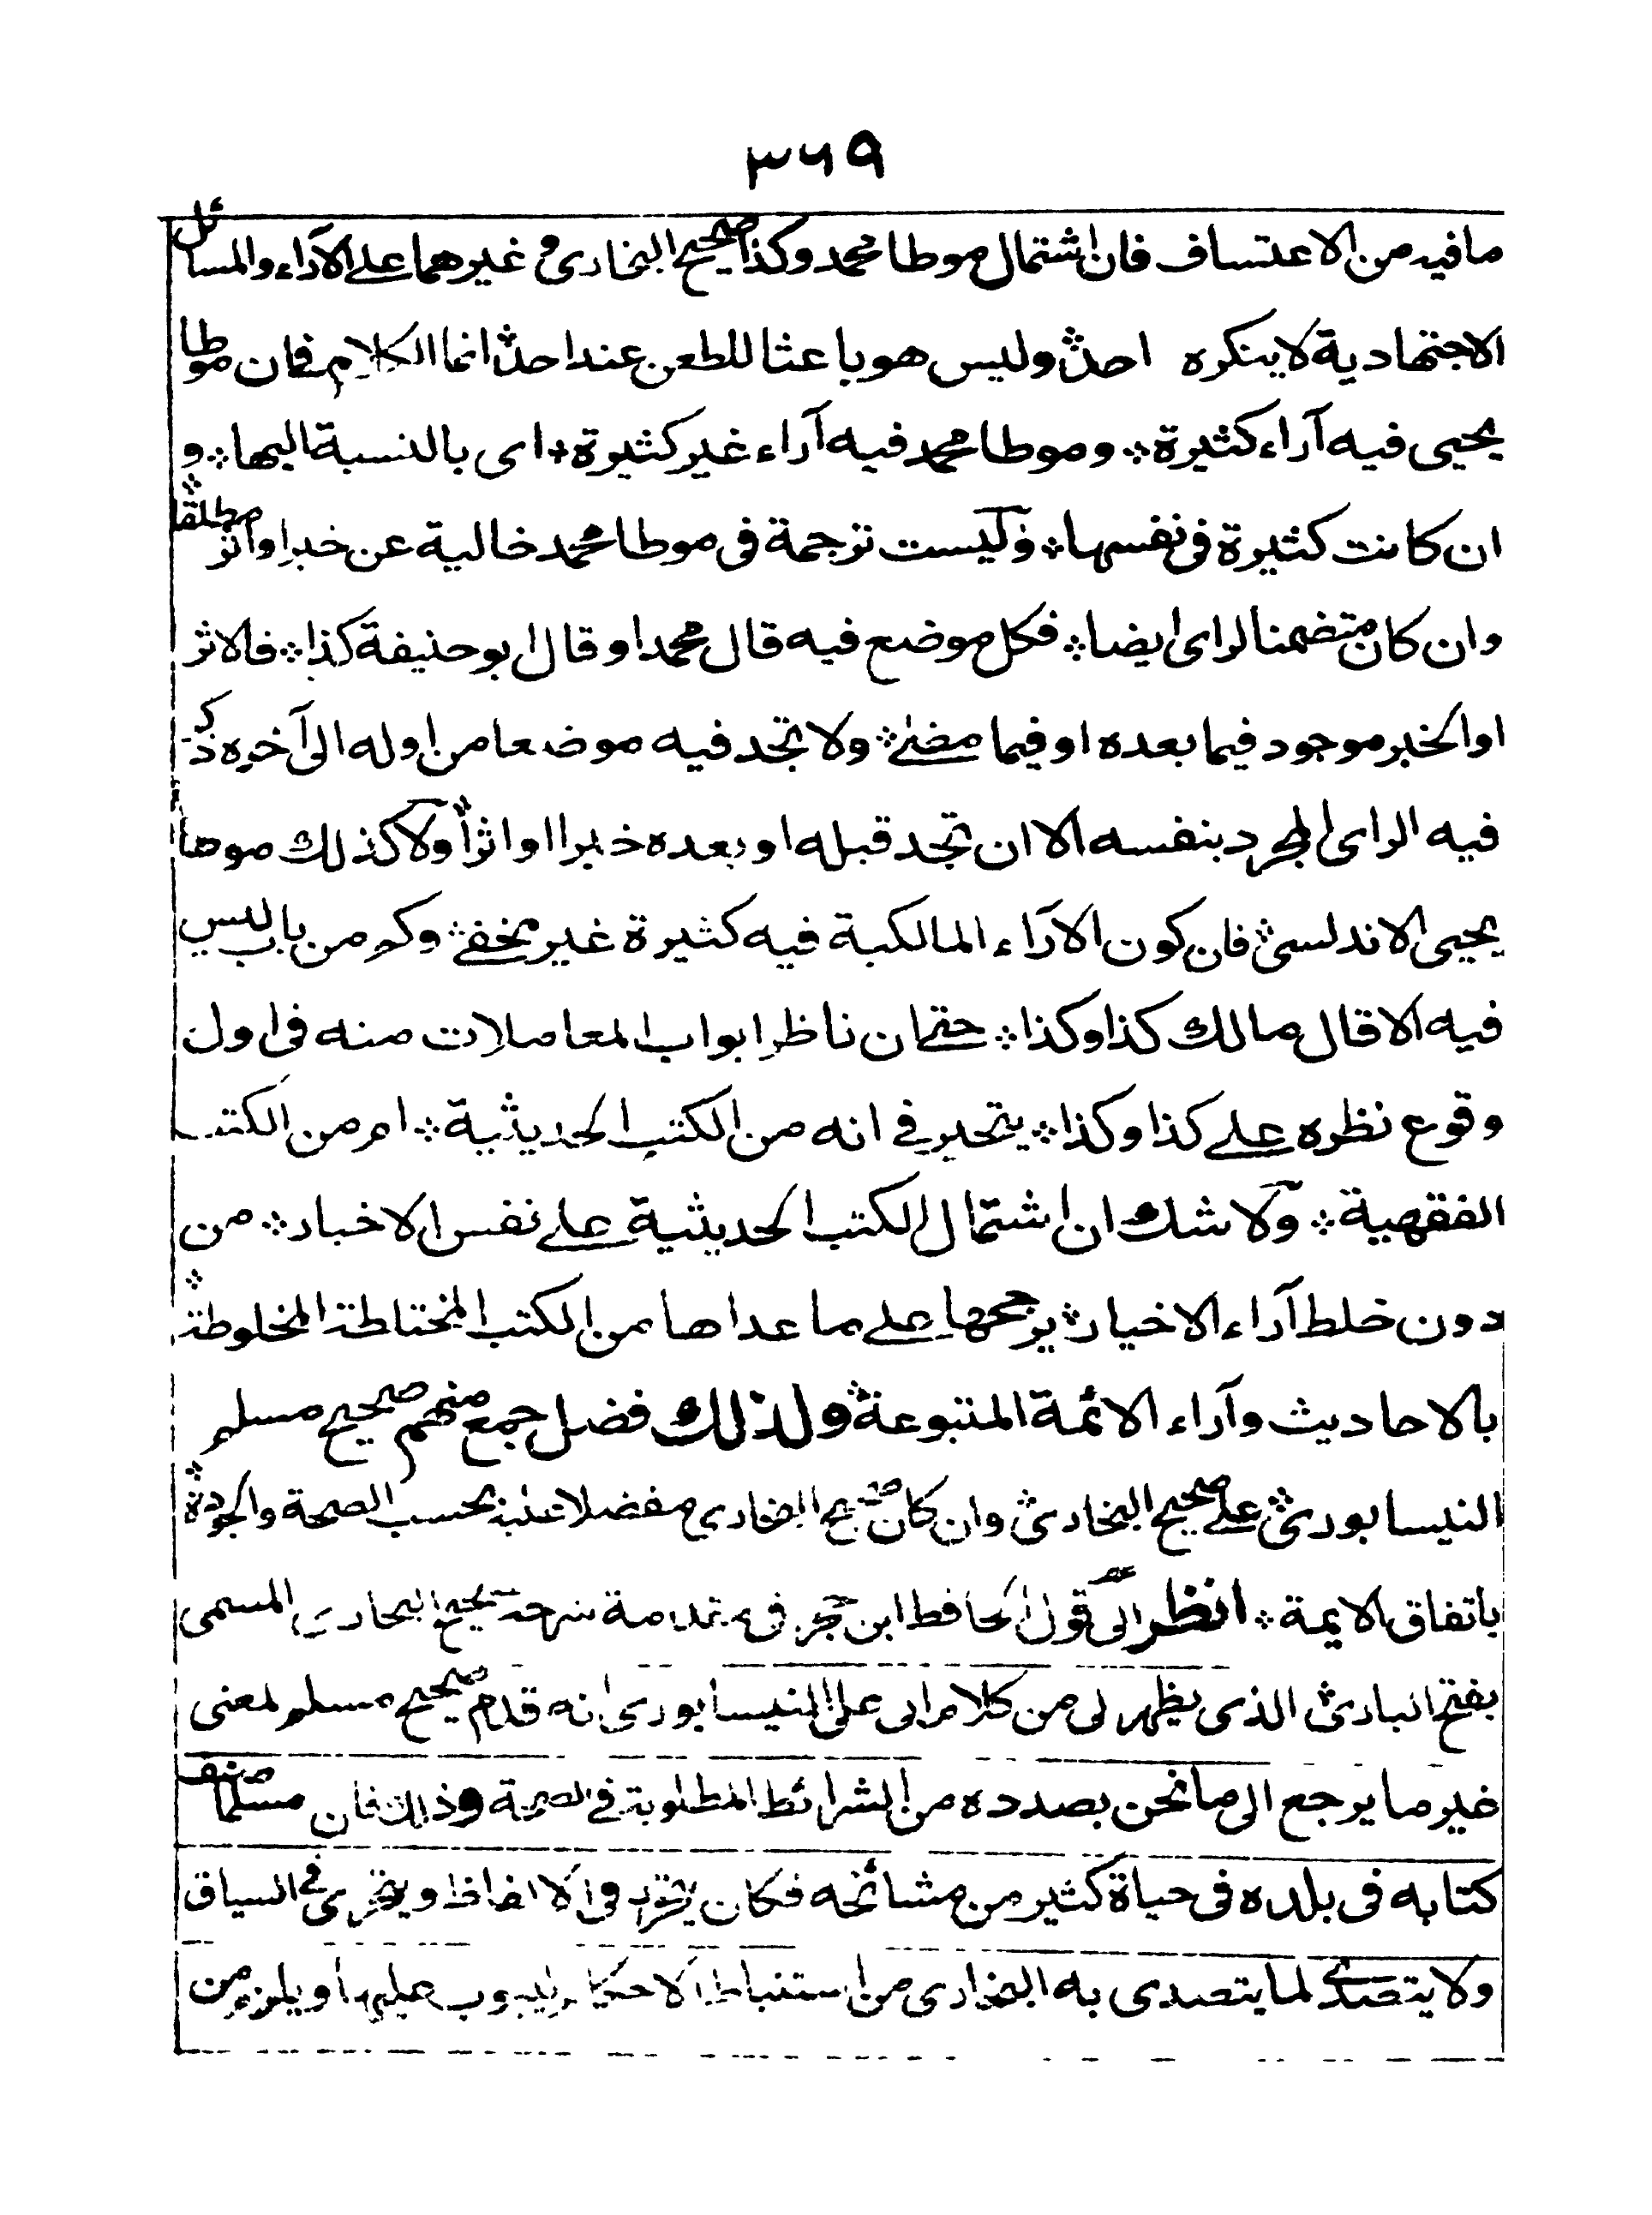 ٣٦٩
مافيه من الاعتساف فان اشتمال موطا محمد وكذا صحيح البخارى وغيرهما على الآراء والمسائل
الاجتهادية لا ينكره احد وليس هو باعثا للطعن عند احد انما الكلام فان موطا
يحيى فيه آراء كثيرة وموطا محمد فيه آراء غير كثيرة اى بالنسبة اليها و
ان كانت كثيرة فى نفسها وليست ترجمة فى موطا محمد خالية عن خبر او اثر مطلقا
وان كان متضمنا لراى ايضا فكل موضع فيه قال محمد او قال ابو حنيفة كذا فالاثر
او الخبر موجود فيما بعده او فيما مضى ولا تجد فيه موضعا من اوله الى آخره ذكر
فيه الراى المجرد بنفسه الا ان تجد قبله او بعده خبرا او اثرا ولا كذلك موطا
يحيى الاندلسى فان كون الآراء المالكية فيه كثيرة غير مخفى وكم من باب ليس
فيه الا قال مالك كذا وكذا حتى ان ناظر ابواب المعاملات منه فى اول
وقوع نظره على كذا وكذا يتحير فى انه من الكتب الحديثية ام من الكتب
الفقهية ولا شك ان اشتمال الكتب الحديثية على نفس الاخبار من
دون خلط آراء الاخيار يرجحها على ما عداها من الكتب المختلطة المخلوطة
بالاحاديث وآراء الائمة المتبوعة ولذلك فضل جمع منهم صحيح مسلم
النيسابورى على صحيح البخارى وان كان صحيح البخارى مفضلا عليه بحسب الصحة والجودة
باتفاق الايمة انظر الى قول الحافظ ابن حجر فى مقدمة شرحه صحيح البخارى المسمى
بفتح البارى الذى يظهر لى من كلام ابى على النيسابورى انه قدم صحيح مسلم لمعنى
غير ما يرجع الى ما نحن بصدده من الشرائط المطلوبة فى الصحة وذلك فان مسلما صنف
كتابه فى بلده فى حياة كثير من مشائخه فكان يتحرز فى الالفاظ ويتحرى فى السياق
ولا يتصدى لما يتصدى به البخارى من استنباط الاحكام ليبوب عليها او يلزم من